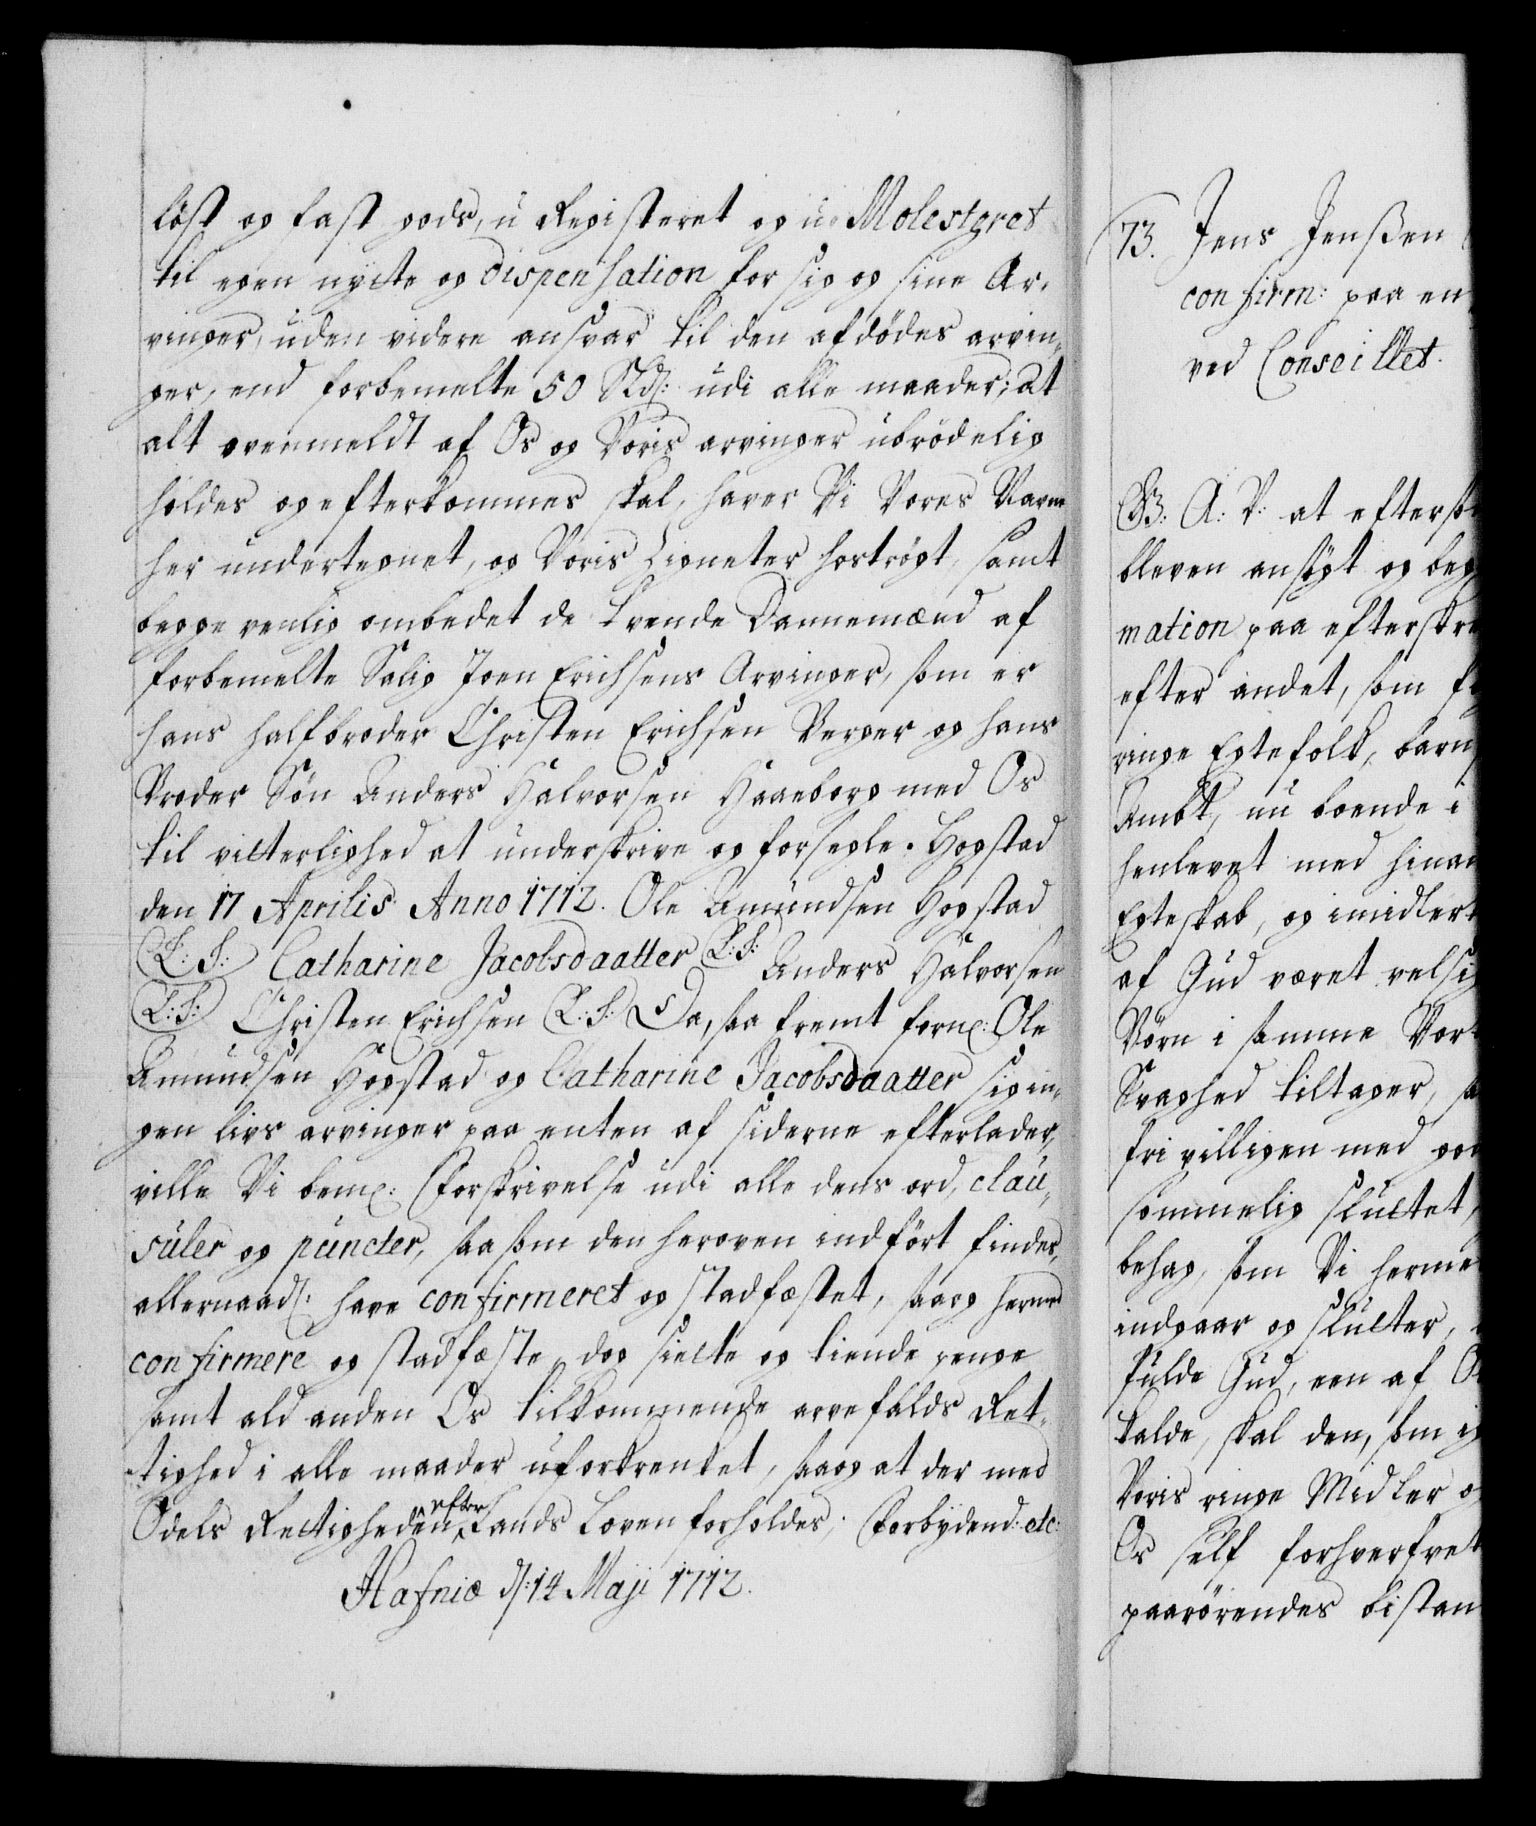 löst og fast gods, u Registeret og u Molesteret
til egen nytte og dispensation for sig og sine Ar-
vinger, uden videre ansvar til den afdödes arvin-
ger, end forbemelte 50 Rdr: udi alle maader; At
alt ovenmeldt af Os og Voris arvinger ubrödelig
holdes og efterkommes skal, haver Vi Vores Navne
her undertegnet, og Voris Signeter hoströgt, samt
begge venlig ombedet de tvende Dannemænd af
forbemelte Salig Joen Erichsens Arvinger, som er
hans halfbroder Christen Erichsen Berger og hans
Broder Sön Anders Halvorsen Haaeborg med Os
til vitterlighed at underskrive og forsegle. Hogstad
den 17 Aprilis Anno 1712. Ole Amundsen Hogstad
(L: S:) Catharine Jacobsdaatter (L: S:) Anders Halvorsen
(L: S:) Christen Erichsen (L: S:) Da, saa fremt forne: Ole
Amundsen Hogstad og Catharine Jacobsdaatter sig in-
gen livs arvinger paa enten af siderne efterlader,
ville Vi beme: Forskrivelse udi alle dens ord, clau-
suler og puncter, saa som den heroven indfört findes,
allernaad: have confirmeret og stadfæstet, saa og hermed
confirmere og stadfæste, dog siette og tiende penge
samt ald anden Os tilkommende arvefalds Ret-
tighed i alle maader uforkrenket, saa og at der med
Odels Rettigheden efter Lands Loven forholdes; Forbydend: etc:
Hafniæ d: 14 Maji 1712.
73. Jens Jenßen
confirm: paa en
ved Conseillet.
G: A: V: at eftersk
bleven ansögt og beg
mation paa efterskre
efter andet, som f
ringe Egtefolk, barn
Ambt, nu boende i
henlevet med hinan
Egteskab, og imidlert
af Gud været velsig
Börn i samme Vor
Svaghed tiltager, sa
fri villigen med go
sommelig sluttet,
behag, som Vi herme
indgaar og slutter,
fulde Gud, een af O
kalde, skal den, som ig
Voris ringe Midler o
Os self forhverfvet
paarörendes bistan